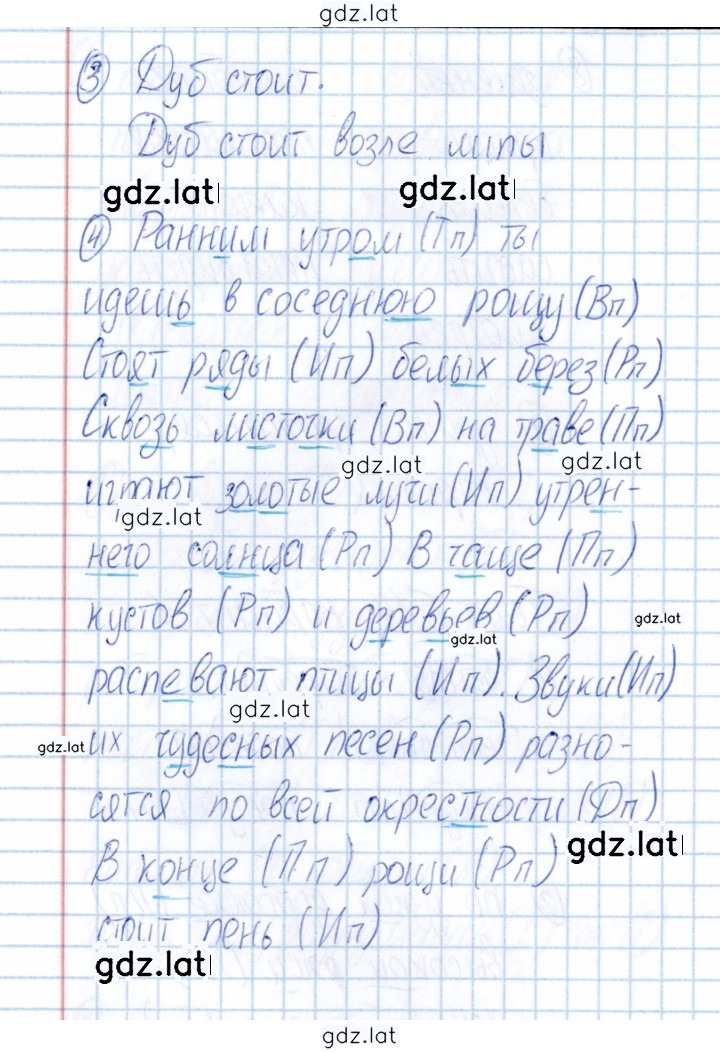 gdz.lat
3 Дуб стоит.
Дуб стоит возле липы
gdz.lat gdz.lat
4 Ранним утром (Тп) ты
идешь в соседнюю рощу (Вп)
Стоят ряды (Ип) белых берез (Рп)
Сквозь листочки (Вп) на траве (Пп)
gdz.lat gdz.lat
играют золотые лучи (Ип) утрен-
gdz.lat
него солнца (Рп) В чаще (Пп)
кустов (Рп) и деревьев (Рп)
gdz.lat
gdz.lat
распевают птицы (Ип). Звуки (Ип)
gdz.lat
gdz.lat
их чудесных песен (Рп) разно-
сятся по всей окрестности (Дп)
gdz.lat
В конце (Пп) рощи (Рп)
стоит пень (Ип)
gdz.lat
gdz.lat